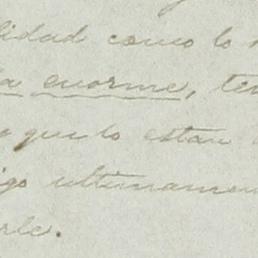 lidad como lo
a enorme, te
o que lo estan
igo ultimamen
rle.